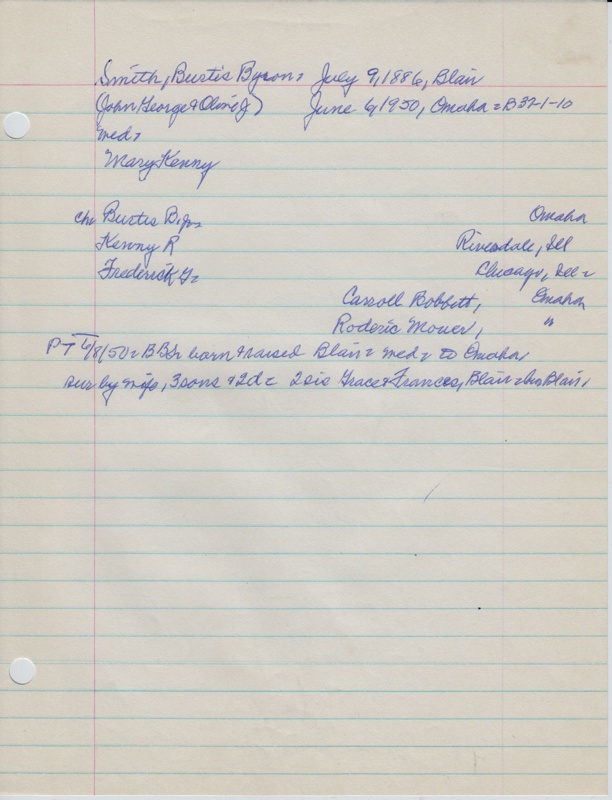 Smith, Burtis Byron = July 9, 1886, Blair
(John George & Olive J) June 6, 1950, Omaha = B 32-1-10
med =
Mary Kenny
ch. Burtis B. jr = Omaha
Kenny R Riverdale, Ill
Frederick G = Chicago, Ill =
Carroll Bobbett, Omaha
Roderic Mower, "
PT 6/8/50 = BBS born & raised Blair = med = to Omaha
sur by wife, 3 sons & 2 d = 2 sis Grace & Frances, Blair = bur Blair.